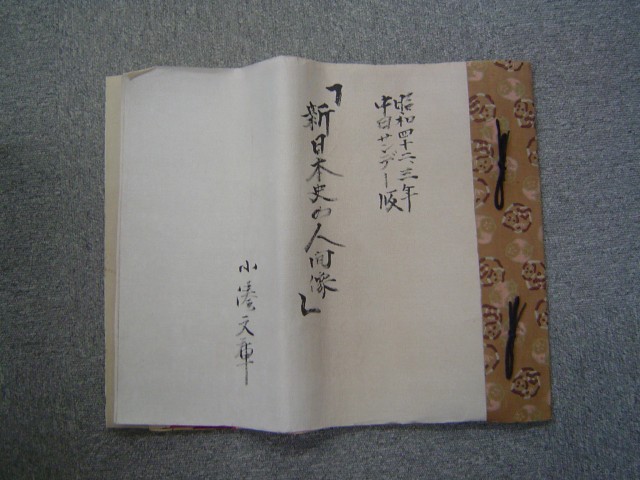 昭和四十二、三年
中日サンデー版
「新日本史の人間像」
小湊文庫